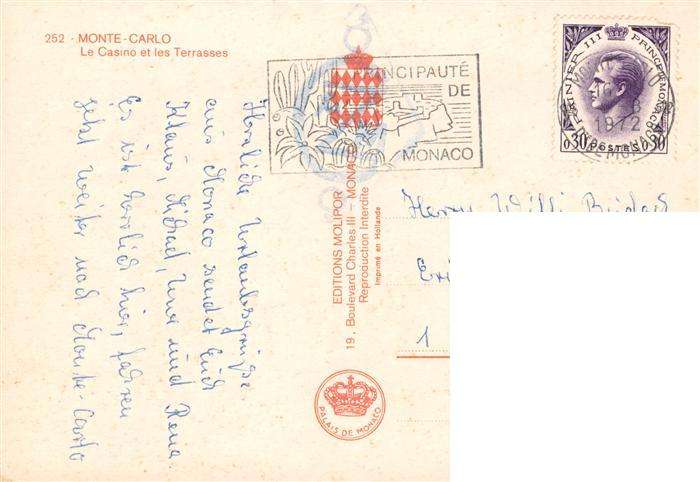 252 - MONTE-CARLO
Le Casino et les Terrasses
PRINCIPAUTÉ
DE
MONACO
RAINIER III PRINCE DE MONACO
0.30 POSTES 0.30
1972
Herzliche Urlaubsgrüße
aus Monaco sendet Euch
Klaus, Michael, und Rena.
Es ist herrlich hier, fahren
jetzt weiter nach Monte-Carlo
EDITIONS MOLIPOR
19, Boulevard Charles III - MONACO
Reproduction Interdite
Imprimé en Hollande
PALAIS DE MONACO
Harry Willi
1